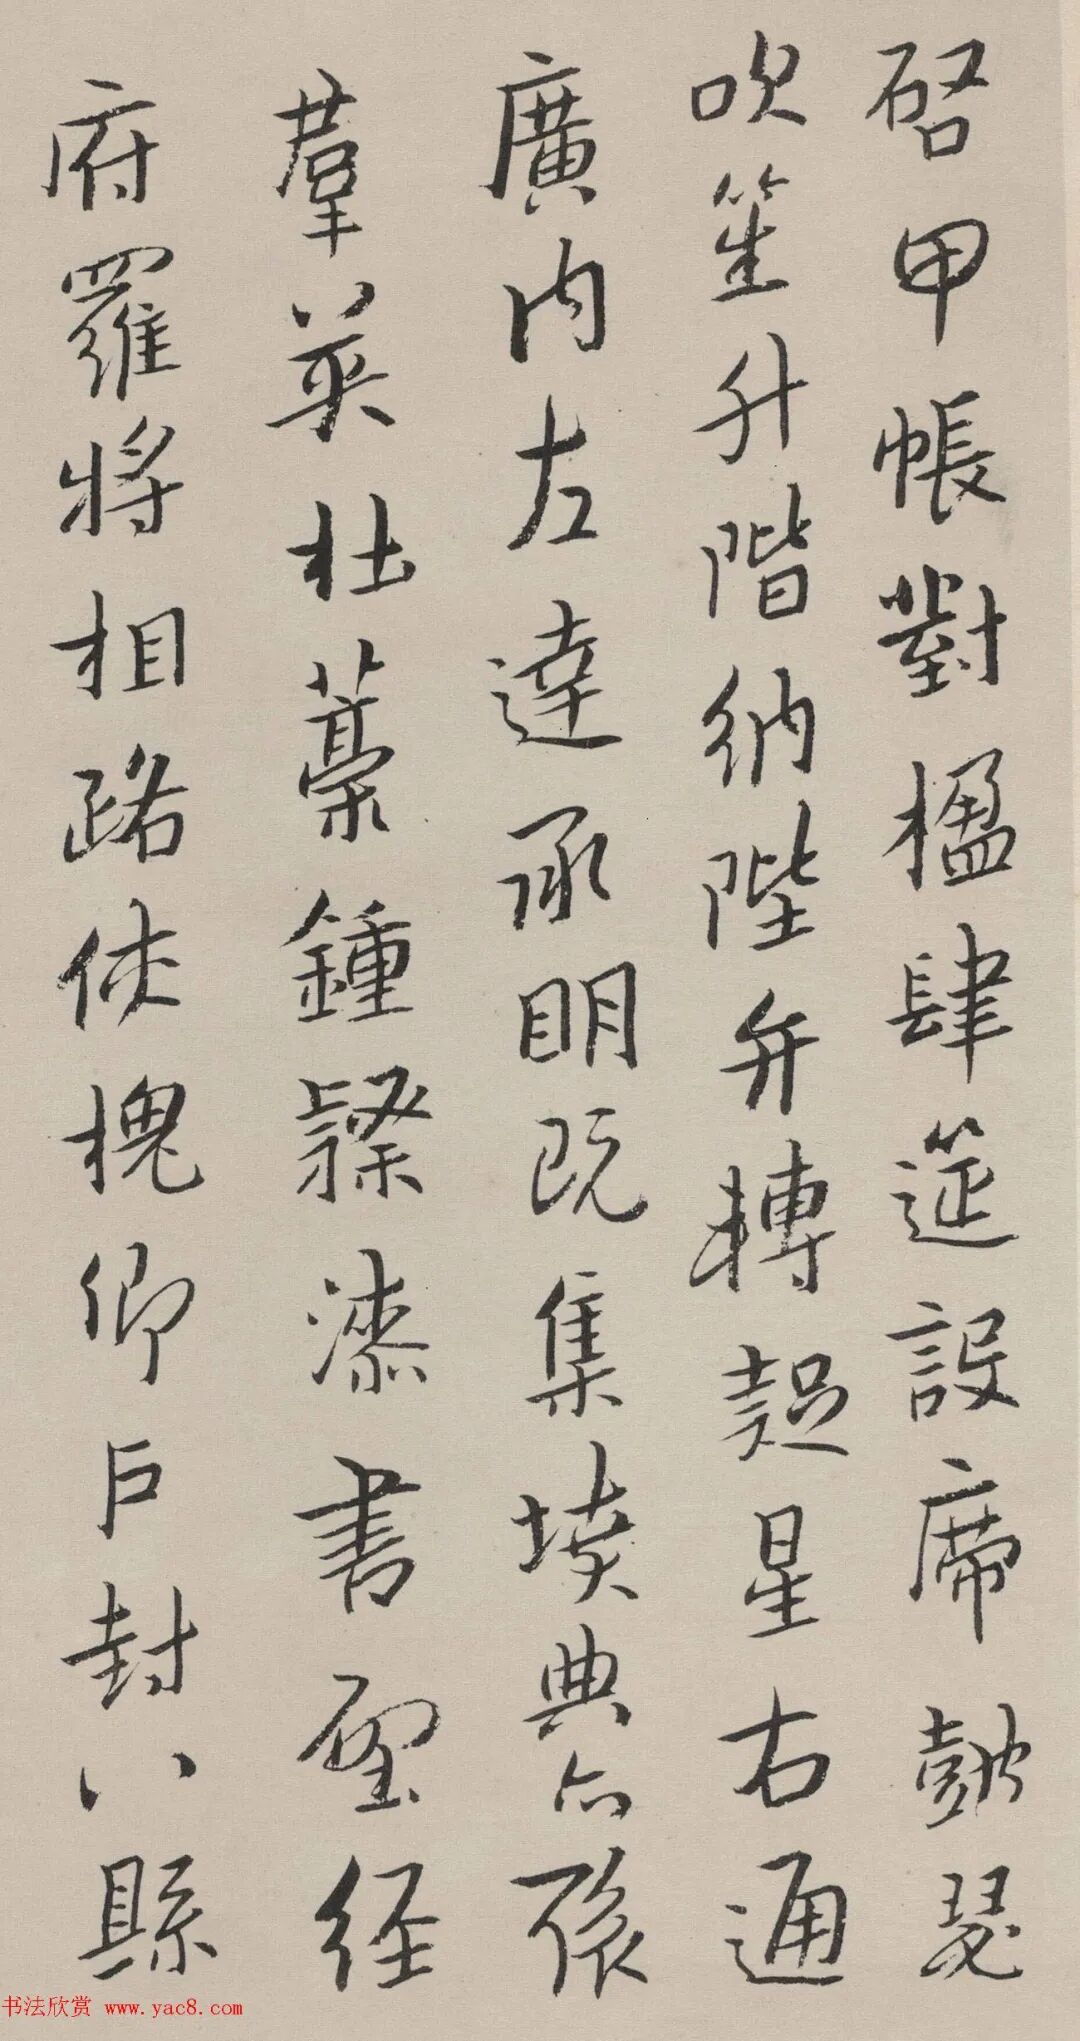 啓甲帳對楹肆筵設席鼓瑟
吹笙升階納陛弁轉疑星右通
廣內左達承明既集墳典亦聚
羣英杜藁鍾隸漆書壁經
府羅將相路俠槐卿戶封八縣
书法欣赏 www.yac8.com